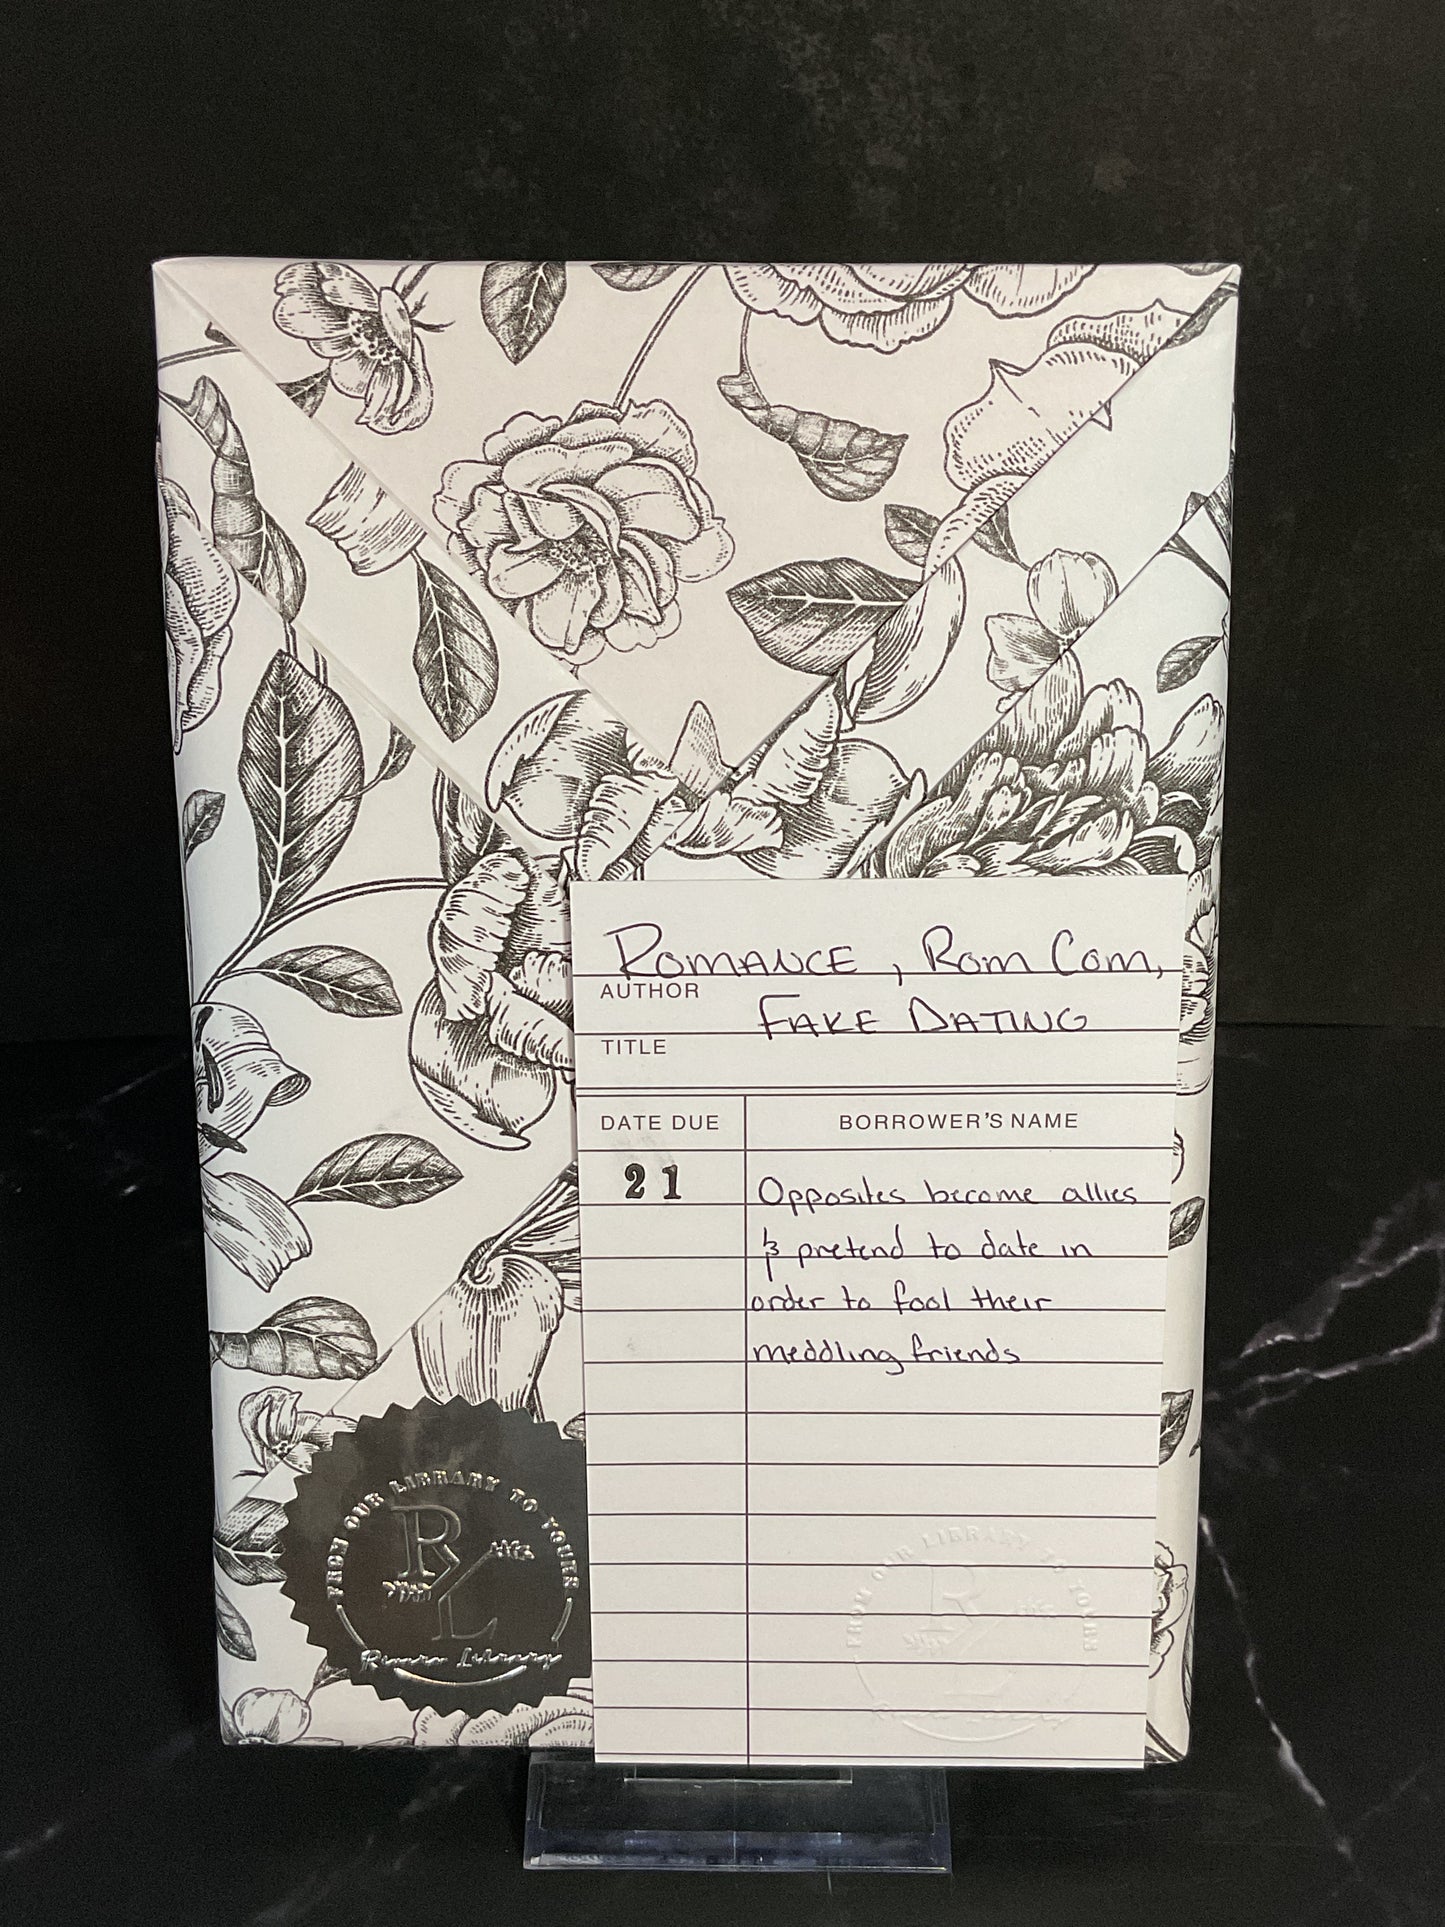 ROMANCE, ROM COM,
AUTHOR
FAKE DATING
TITLE
DATE DUE
BORROWER'S NAME
21
Opposites become allies
& pretend to date in
order to fool their
meddling friends
FROM OUR LIBRARY TO YOURS
RL
Library
FROM OUR LIBRARY TO YOURS
RL